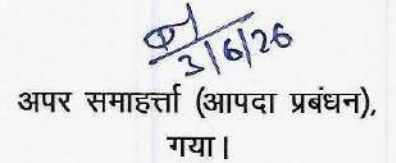 3/6/26
अपर समाहर्त्ता (आपदा प्रबंधन),
गया।